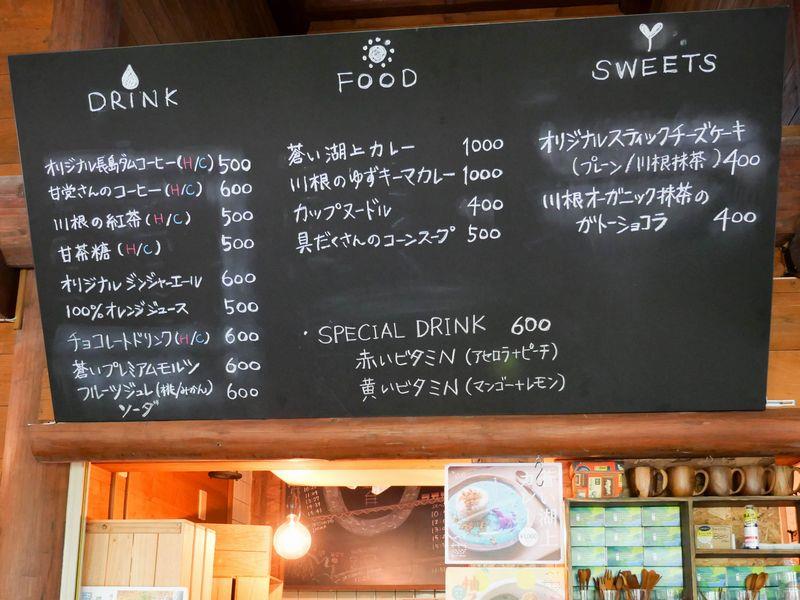 DRINK
オリジナル長島ダムコーヒー(H/C) 500
甘党さんのコーヒー(H/C) 600
川根の紅茶(H/C) 500
甘茶糖(H/C) 500
オリジナルジンジャーエール 600
100%オレンジジュース 500
チョコレートドリンク(H/C) 600
蒼いプレミアムモルツ 600
フルーツジュレ(桃/みかん) 600
ソーダ
FOOD
蒼い湖上カレー 1000
川根のゆずキーマカレー 1000
カップヌードル 400
具だくさんのコーンスープ 500
・SPECIAL DRINK 600
赤いビタミN(アセロラ+ピーチ)
黄いビタミN(マンゴー+レモン)
SWEETS
オリジナルスティックチーズケーキ
(プレーン/川根抹茶) 400
川根オーガニック抹茶の
ガトーショコラ 400
湖上
¥1,000